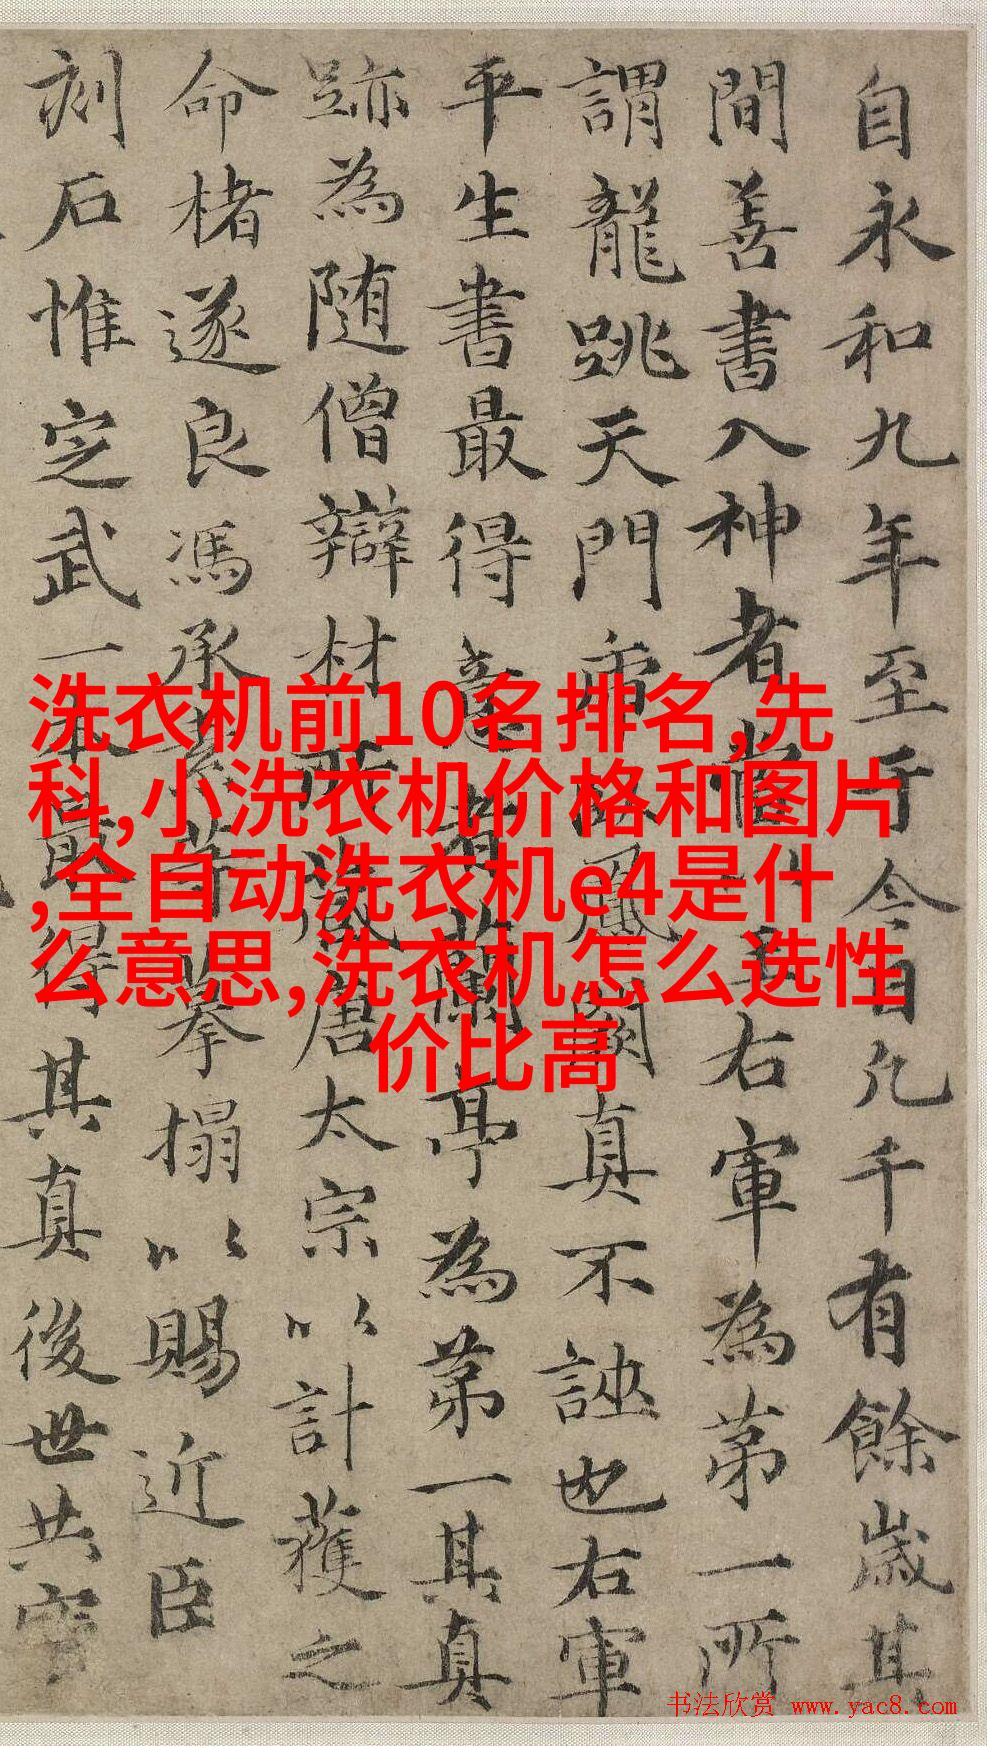 自永和九年至于今日凡千有餘歲其
間善書入神者右軍為第一所
謂龍跳天門虎臥鳳閣真不誣也右軍
平生書最得意者蘭亭為第一其真
跡為随僧辯材所藏唐太宗以計獲之
命楮遂良馮承素等摹搨以賜近臣
刻石惟定武一本最得其真後世共寶
洗衣机前10名排名,先
科,小洗衣机价格和图片
,全自动洗衣机e4是什
么意思,洗衣机怎么选性
价比高
书法欣赏 www.yac8.com